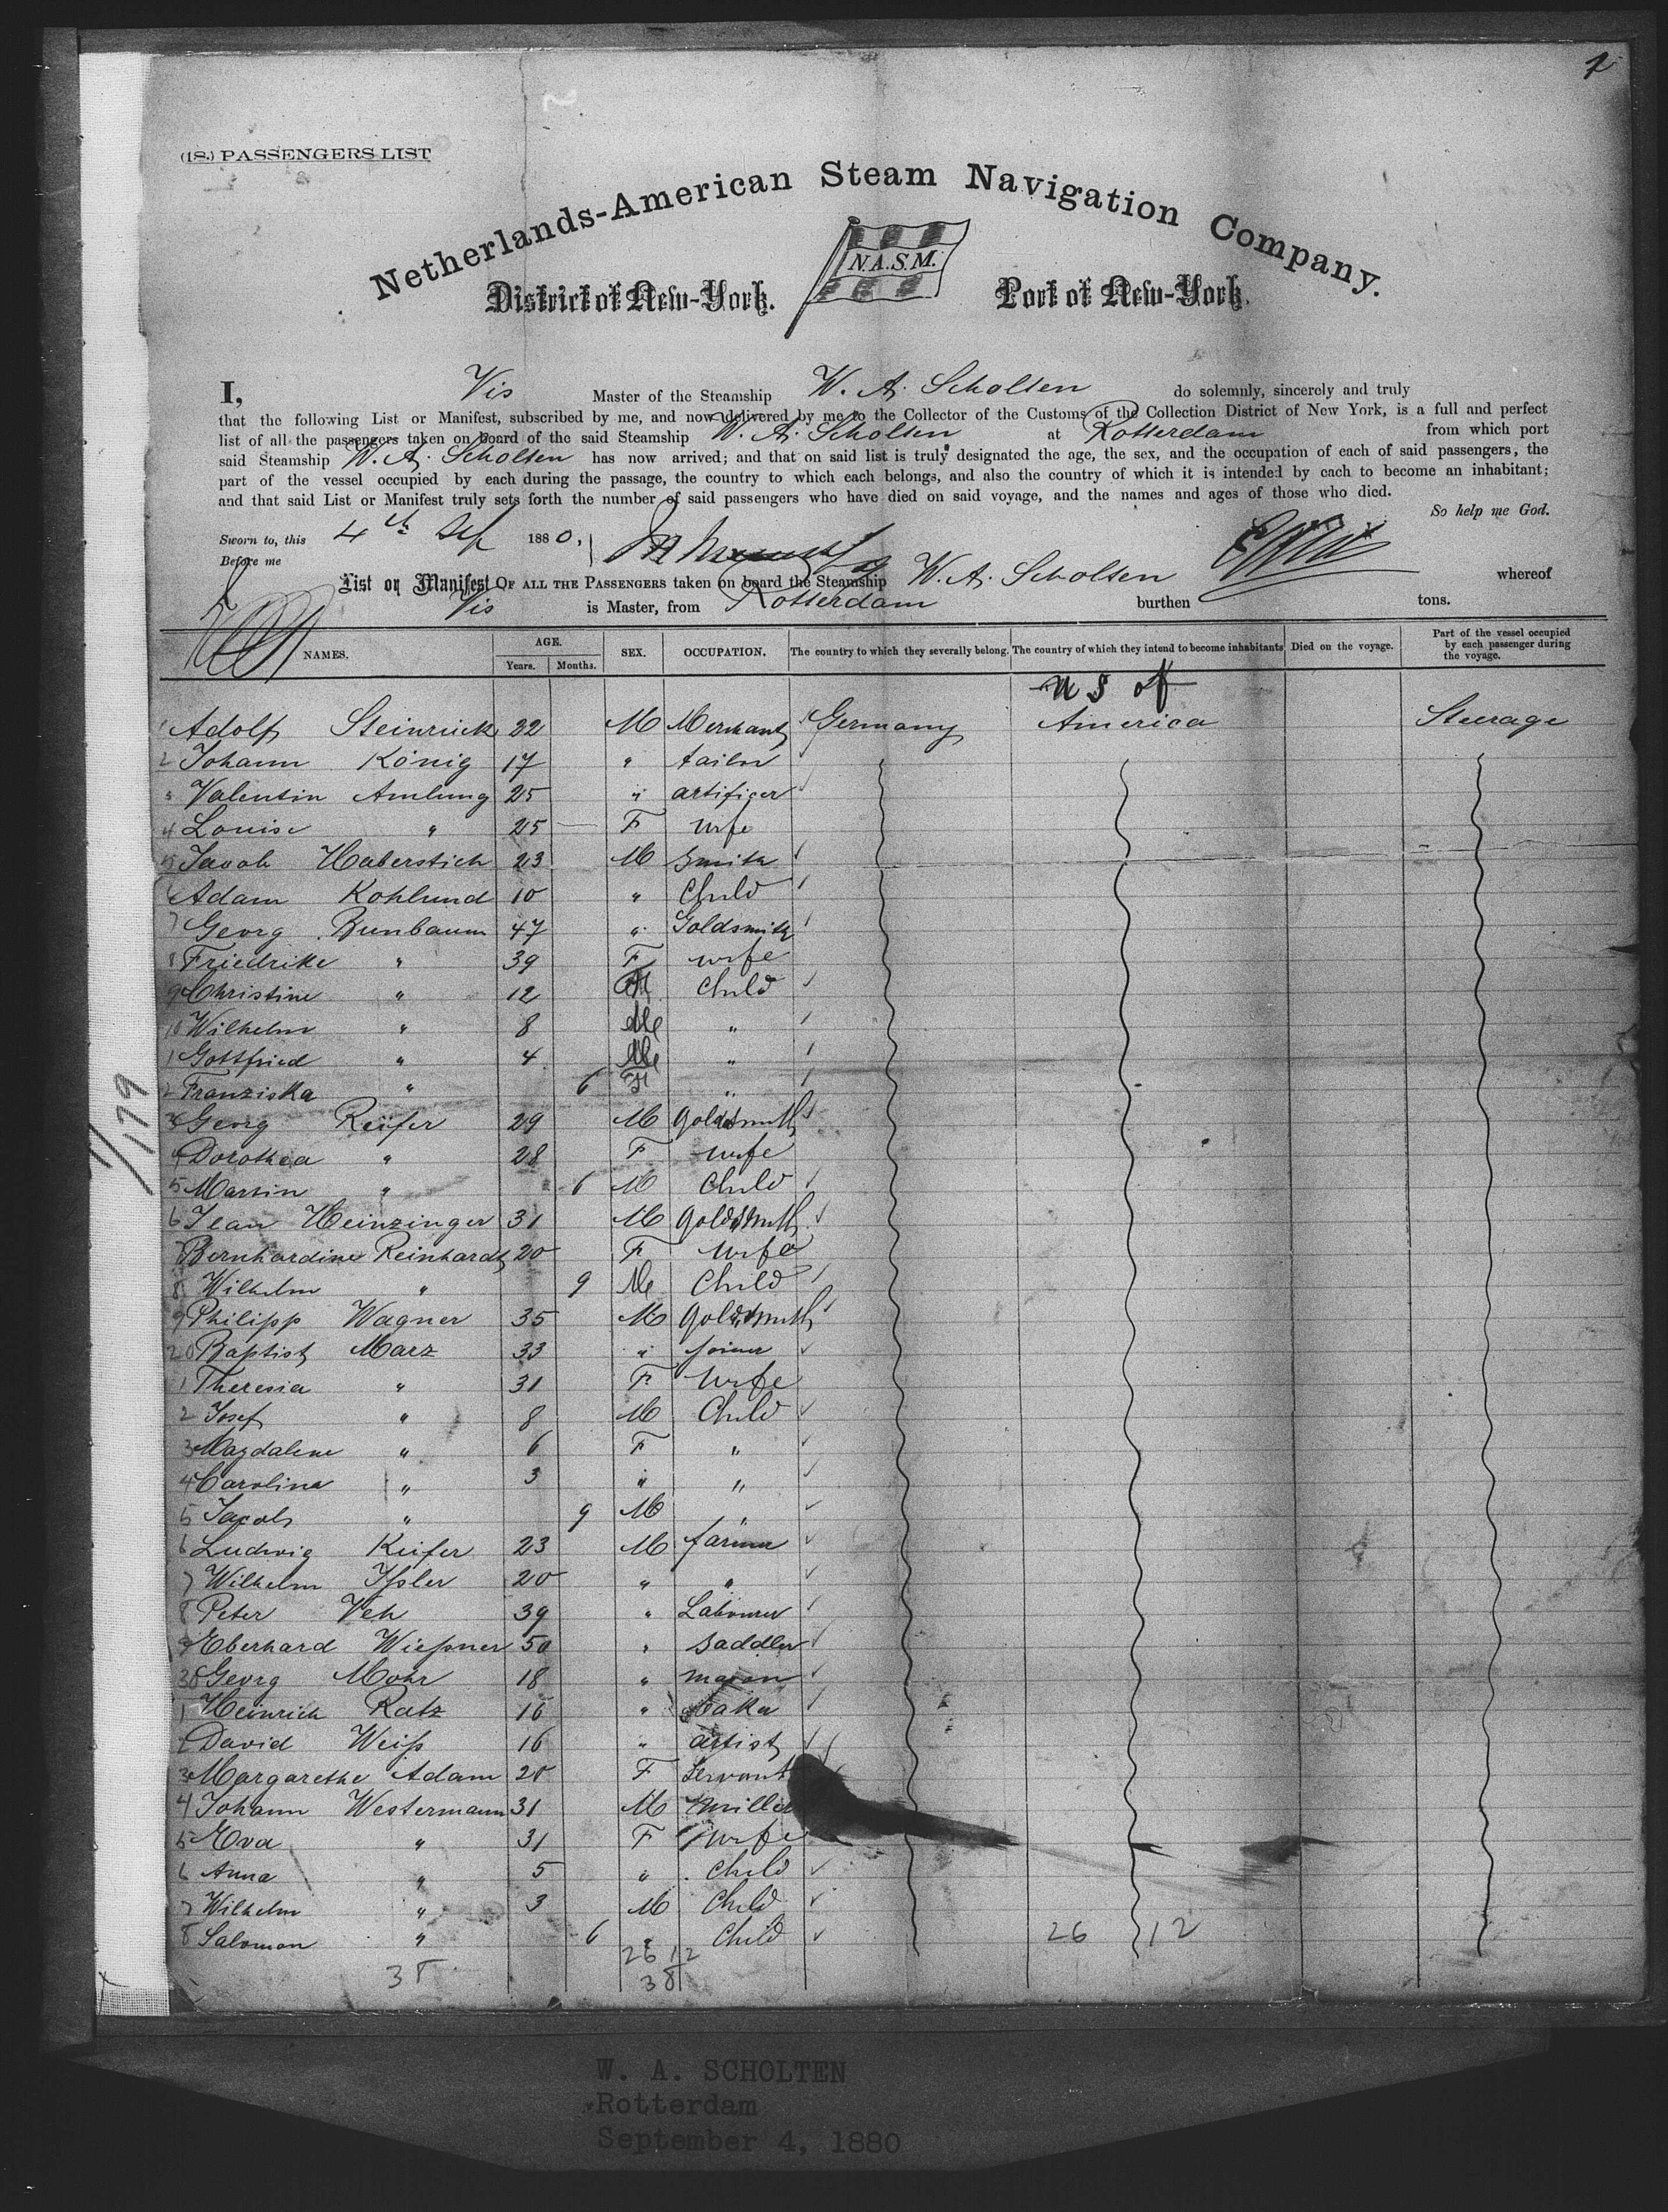 1
(18.) PASSENGERS LIST
Netherlands-American Steam Navigation Company.
N.A.S.M.
District of New-York. Port of New-York.
I, Vis Master of the Steamship W. A. Scholten do solemnly, sincerely and truly
that the following List or Manifest, subscribed by me, and now delivered by me to the Collector of the Customs of the Collection District of New York, is a full and perfect
list of all the passengers taken on board of the said Steamship W. A. Scholten at Rotterdam from which port
said Steamship W. A. Scholten has now arrived; and that on said list is truly designated the age, the sex, and the occupation of each of said passengers, the
part of the vessel occupied by each during the passage, the country to which each belongs, and also the country of which it is intended by each to become an inhabitant;
and that said List or Manifest truly sets forth the number of said passengers who have died on said voyage, and the names and ages of those who died.
So help me God.
Sworn to, this 4th Sep 1880,
Before me
List or Manifest OF ALL THE PASSENGERS taken on board the Steamship W. A. Scholten whereof
Vis is Master, from Rotterdam burthen tons.
NAMES. AGE. Years. Months. SEX. OCCUPATION. The country to which they severally belong. The country of which they intend to become inhabitants Died on the voyage. Part of the vessel occupied by each passenger during the voyage.
U S of
1 Adolf Steinrück 22 M Merchant Germany America Steerage
2 Johann König 17 " tailor
3 Valentin Amlung 25 " artificer
4 Louise " 25 F wife
5 Jacob Haberstich 23 M Smith
6 Adam Kohlund 10 " Child
7 Georg Bunbaum 47 " Goldsmith
8 Friedrike " 39 F wife
9 Christine " 12 Child
10 Wilhelm " 8 M "
1 Gottfried " 4 M "
2 Franziska " 6 F "
3 Georg Reifer 29 M goldsmith
4 Dorothea " 28 F wife
5 Martin " 6 M Child
6 Jean Heinzinger 31 M goldsmith
7 Bernhardine Reinhardt 20 F wife
8 Wilhelm " 9 M Child
9 Philipp Wagner 35 M goldsmith
20 Baptist Marz 33 " joiner
1 Theresia " 31 F wife
2 Josef " 8 M Child
3 Magdalene " 6 F "
4 Carolina " 3 " "
5 Jacob " 9 M "
6 Ludwig Keifer 23 M farmer
7 Wilhelm Ißler 20 " "
8 Peter Veh 39 " Labourer
9 Eberhard Wießner 50 " saddler
30 Georg Mohr 18 " mason
1 Heinrich Ratz 16 " baker
2 David Weiß 16 " artist
3 Margarethe Adam 20 F Servant
4 Johann Westermann 31 M miller
5 Eva " 31 F wife
6 Anna " 5 " Child
7 Wilhelm " 3 M Child
8 Salomon " 6 " Child 26 12
26 12
38 38
1/179
W. A. SCHOLTEN
Rotterdam
September 4, 1880